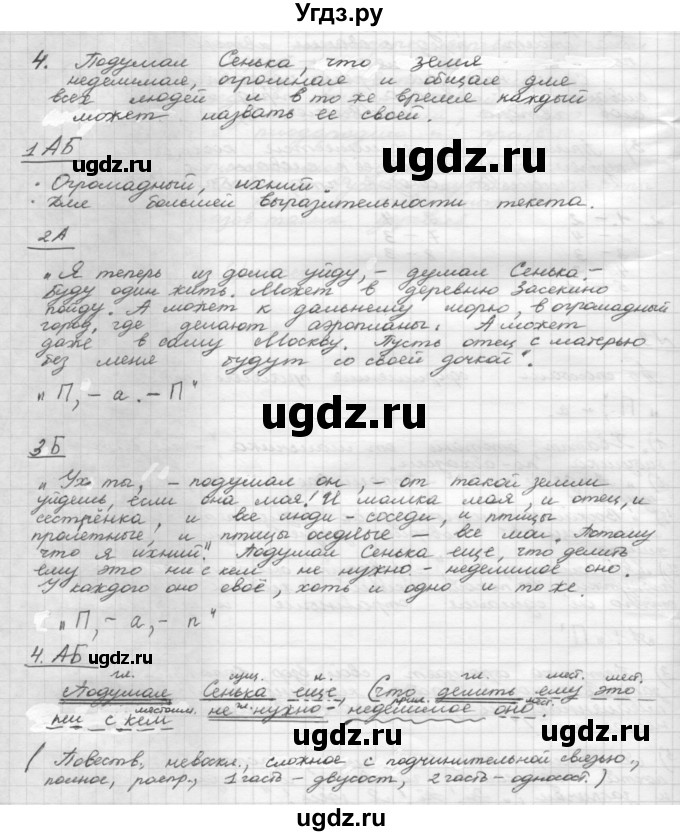 Угдз.ру
4. Подумал Сенька, что земля
неделимая, огромная и общая для
всех людей и в то же время каждый
может назвать ее своей.
1 АБ
ugdz.ru
ugdz.ru
· Огромадный, ихний.
· Для большей выразительности текста.
2А
„Я теперь из дома уйду, – думал Сенька. –
Буду один жить. Может в деревню Засекино
пойду. А может к дальнему морю, в огромадный
город, где делают аэропланы. А может
даже в саму Москву. Пусть отец с матерью
без меня будут со своей дочкой".
„П, – а. – П"
ugdz.ru
3Б
„Ух ты, – подумал он, – от такой земли
уйдешь, если она моя! И мамка моя, и отец, и
сестрёнка, и все люди – соседи, и птицы
пролетные, и птицы оседлые – все мои. Потому
что я ихний". Подумал Сенька еще, что делить
ему это ни с кем не нужно – неделимое оно.
У каждого оно своё, хоть и одно и то же.
„П, – а, – п"
ugdz.ru
4. АБ
ugdz.ru
гл. сущ. н. гл. мест. мест.
Подумал Сенька еще, (что делить ему это
местоим. прил. мест.
ни с кем не нужно – неделимое оно.
(Повеств., невоскл., сложное с подчинительной связью,
полное, распр., 1 часть – двусост, 2 часть – односост.)
ugdz.ru